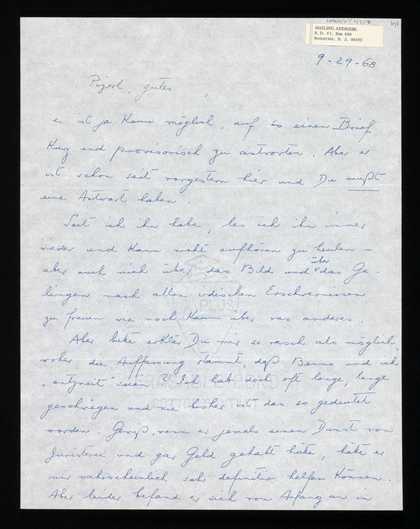 9-29-68
gutes,
es ist ja kaum möglich, auf so einen Brief
kurz und provisorisch zu antworten. Aber er
ist schon seit vorgestern hier und Du mußt
eine Antwort haben
Seit ich ihn habe, les ich ihn immer
wieder und kann nicht aufhören zu heulen –
aber auch mich über das Bild und über das Ge-
lingen nach allen Erschwernissen
zu freuen wie noch kaum über was anderes.
Aber bitte erklär Du mir so rasch als möglich,
woher die Auffassung stammt, daß und ich
entzweit seien? Ich hab doch oft lange, lange
geschwiegen und nie bisher ist das so gedeutet
worden. Gewiß, wenn er jemals einen Dunst von
Juristerei und gar Geld gehabt hätte, hätte er
mir wahrscheinlich sehr definitiv helfen können.
Aber leider befand er sich von Anfang an in